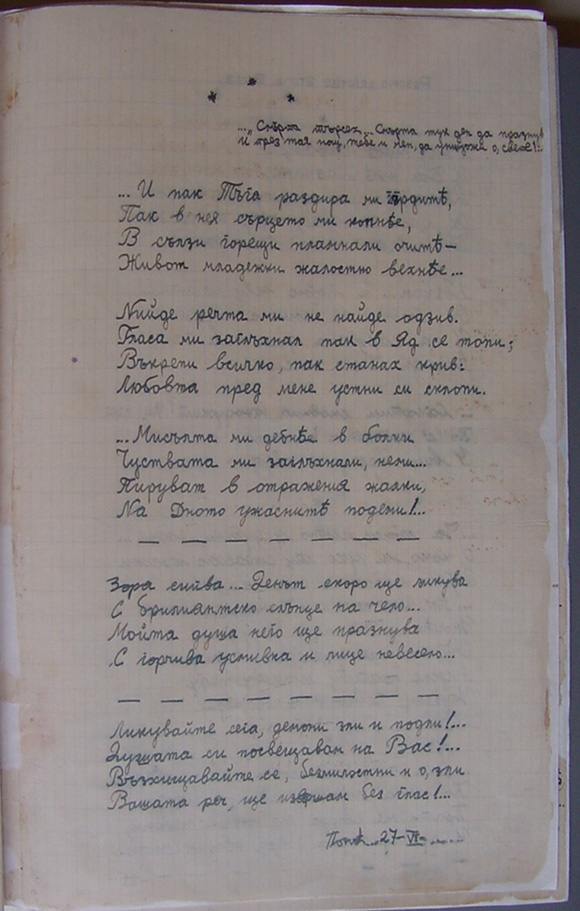 * * *
..." Смърт търсех... Смърта тук ден да празнув
И през тая нощ, тебе и мен, да унищожи о, свете!..
... И пак Тъга раздира ми гърдитѣ,
Пак в нея сърцето ми копнѣе,
В сълзи горещи пламнали очитѣ –
Живот младежки жалостно вехнѣе...
Нийде речта ми не найде одзив.
Гласа ми заглъхнал пак в Яд се топи;
Вкрепи всичко, пак станах крив:
Любовта пред мене устни си склопи.
... Мисълта ми дебнѣе в болки
Чуствата ми заглъхнали, неми...
Пируват в отражения жалки,
На Дното ужаснитѣ подеми!..
— — — — — — —
Зора сийва... Денът скоро ще ликува
С брилиянтско слънце на чело...
Мойта душа него ще празнува
С горчива усмивка и лице невесело...
— — — — — — —
Ликувайте сега, демони зли и подли!...
Душата си посвещавам на Вас!...
Възхищавайте се, безмилостни и о, зли
Вашата реч, ще извършам без глас!...
27–VI–